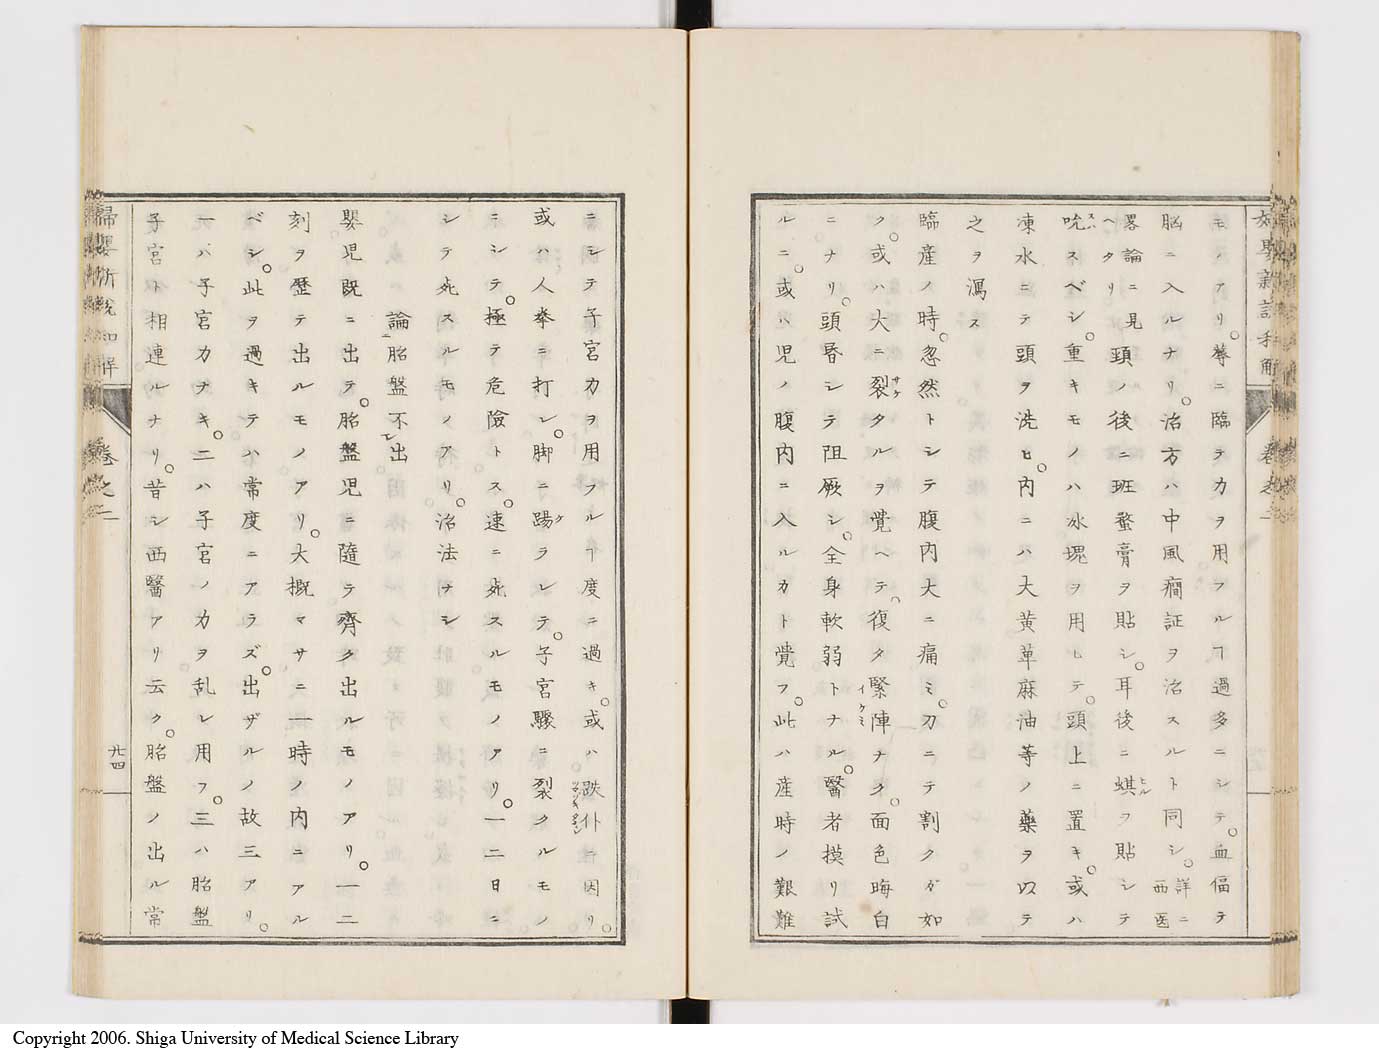 モノアリ。蓐ニ臨テカヲ用フルヿ過多ニシテ。血偪テ
脳ニ入ルナリ。治方ハ中風癇証ヲ治スルト同シ。詳ニ西医
畧論ニ見ヘタリ 頸ノ後ニ班蝥膏ヲ貼シ。耳後ニ蜞ヲ貼シテ
吮スベシ。重キモノハ氷塊ヲ用ヒテ。頭上ニ置キ。或ハ
凍水ニテ頭ヲ洗ヒ。内ニハ大黄草麻油等ノ藥ヲ以テ
之ヲ瀉ス
臨産ノ時。忽然トシテ腹内大ニ痛ミ。刀ニテ割クガ如
ク。或ハ大ニ裂タルヲ覺ヘテ。復タ緊陣ナク。面色晦白
ニナリ。頭昏シテ阻厥シ。全身軟弱トナル。醫者摸リ試
ルニ。或ハ児ノ腹内ニ入ルカト覺フ。此ハ産時ノ艱難
ニシテ子宮力ヲ用フルヿ度ニ過キ。或ハ跌仆ニ因リ。
或ハ人拳ニ打レ。脚ニ踢ラレテ。子宮驟ニ裂クルモノ
ニシテ。極テ危險トス。速ニ死スルモノアリ。一二日ニ
シテ死スルモノアリ。治法ナシ
論胎盤不出
嬰児既ニ出テ。胎盤児ニ隨テ齊ク出ルモノアリ。一二
刻ヲ歴テ出ルモノアリ。大概マサニ一時ノ内ニアル
ベシ。此ヲ過キテハ常度ニアラズ。出ザルノ故三アリ。
一ハ子宮カナキ。二ハ子宮ノカヲ乱レ用フ。三ハ胎盤
子宮ト相連ルナリ。昔シ西醫アリ云ク。胎盤ノ出ル常
卷之二
廿四